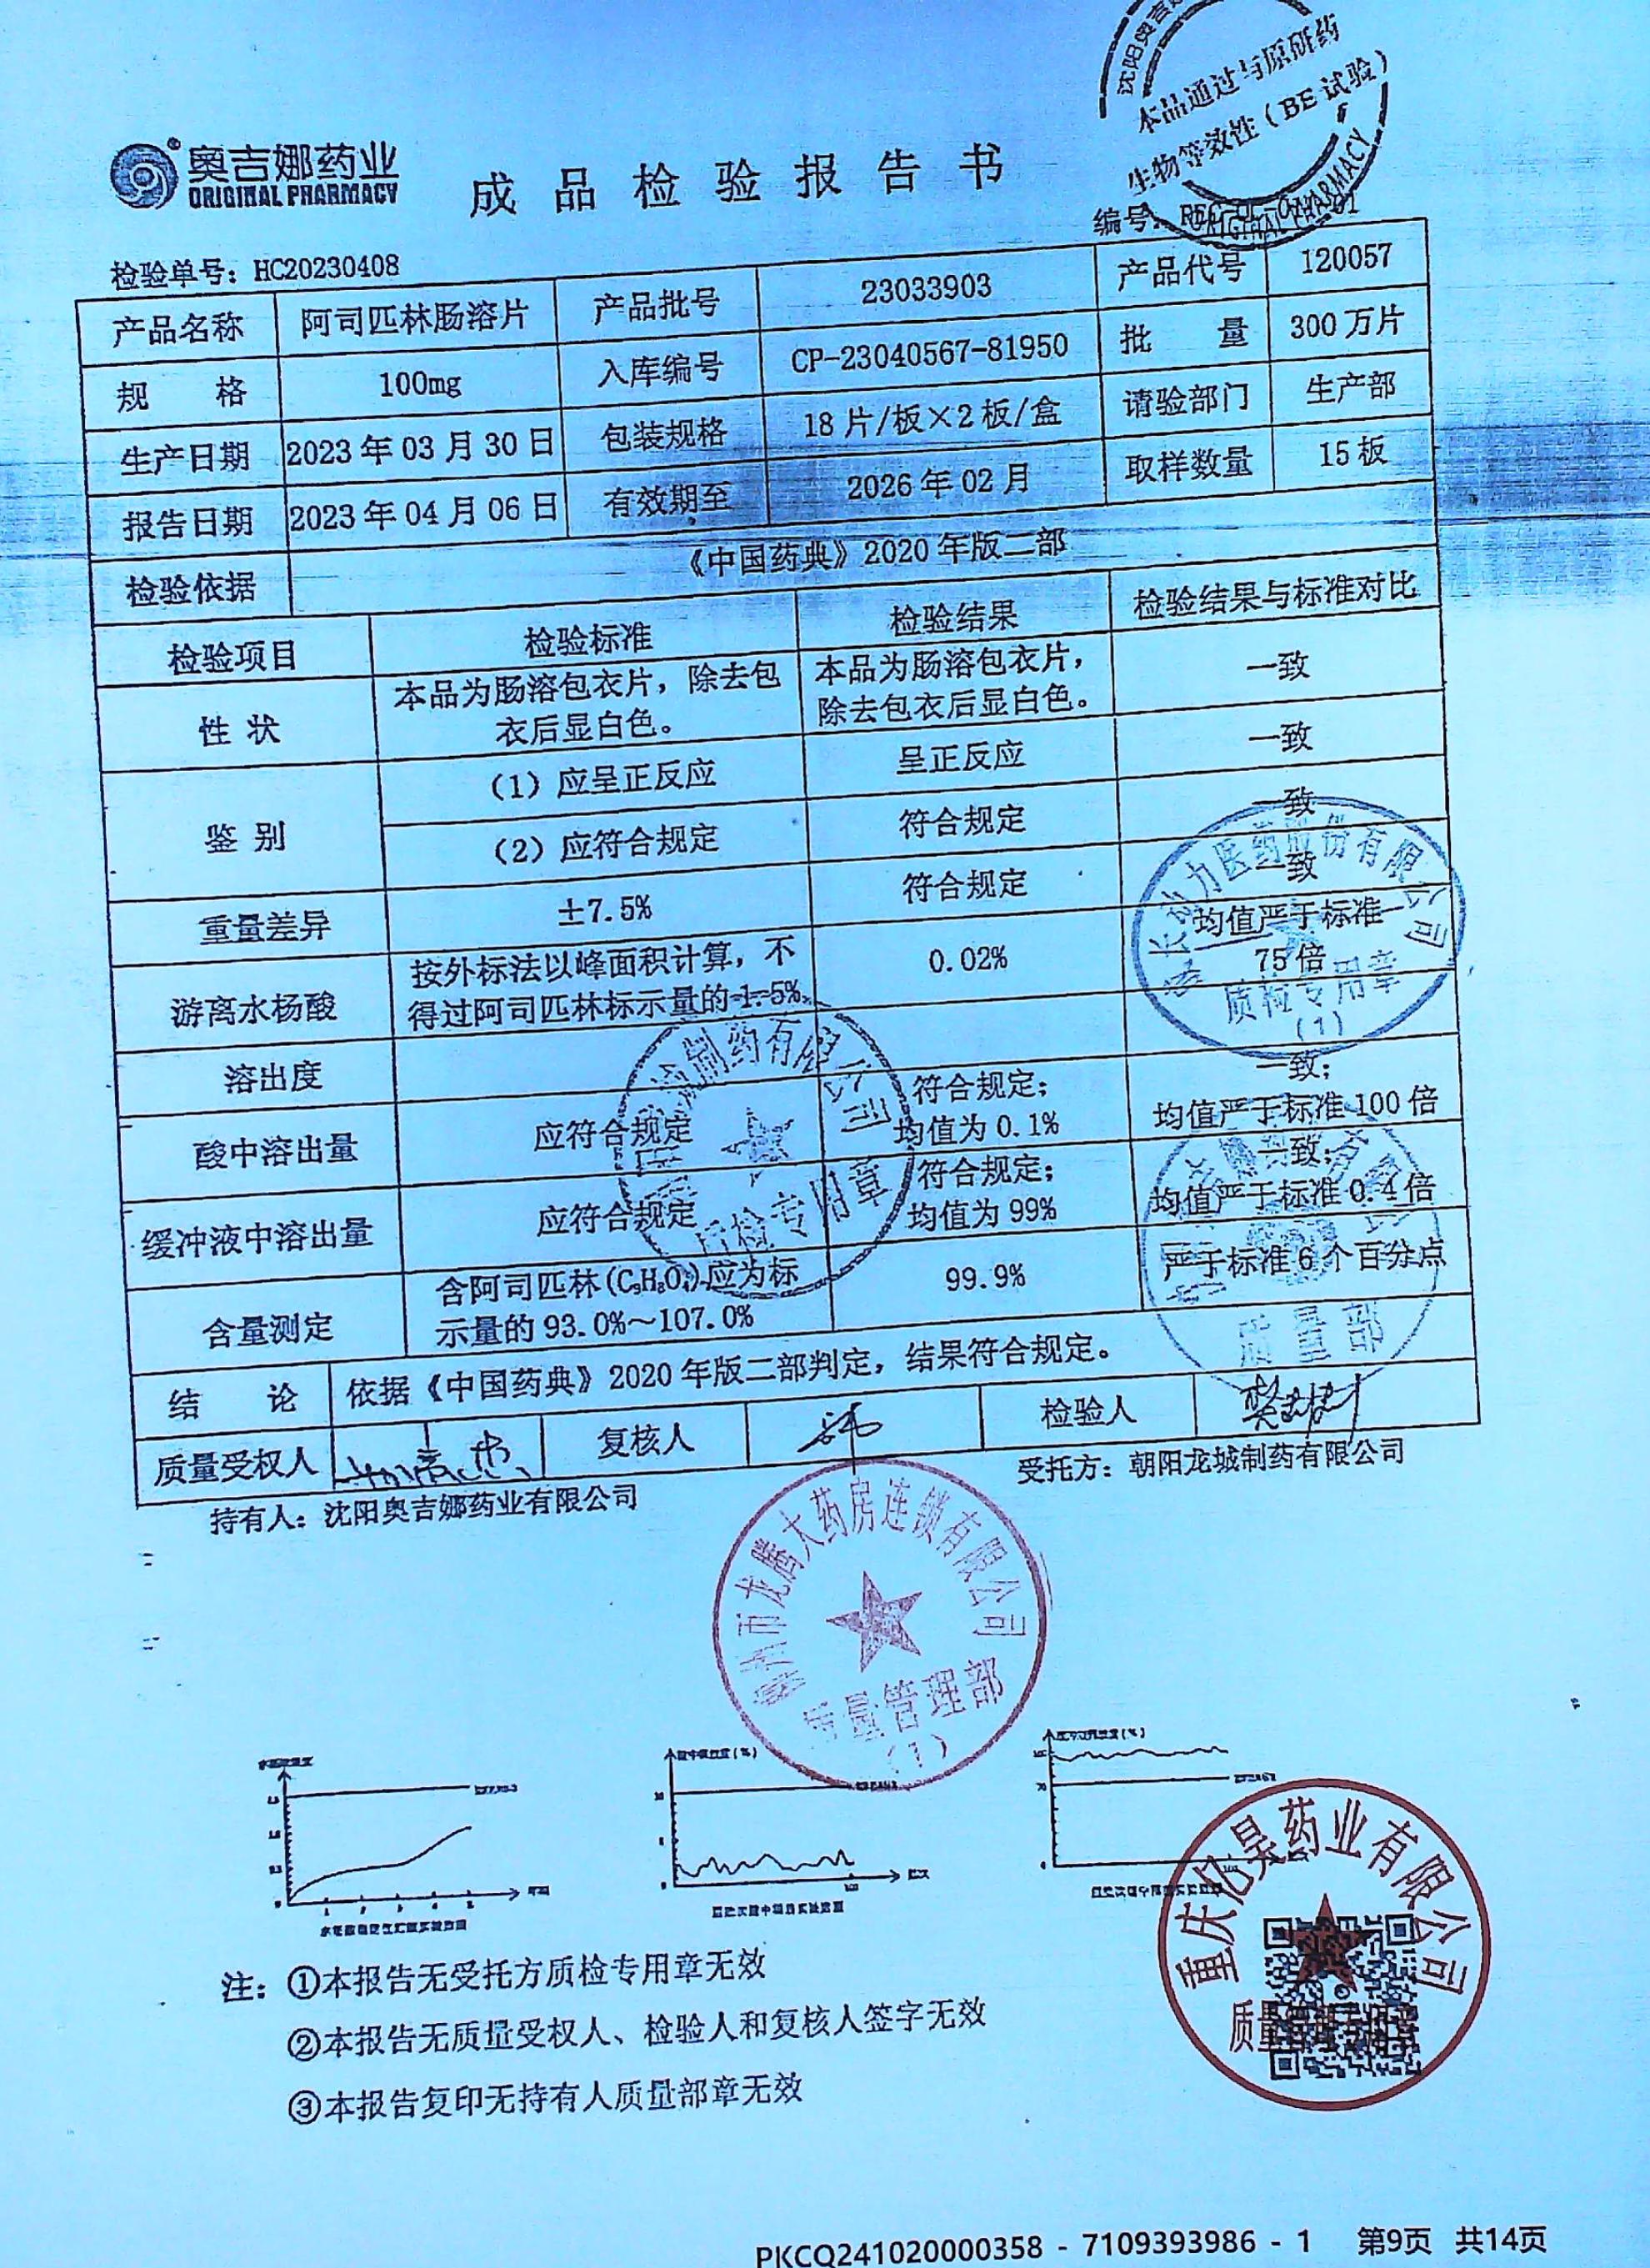 沈阳奥吉
本品通过与原研药
生物等效性（BE试验）
ORIGINAL PHARMACY
奥吉娜药业
ORIGINAL PHARMACY
成品检验报告书
编号：
检验单号：HC20230408
产品名称 阿司匹林肠溶片 产品批号 23033903 产品代号 120057
规 格 100mg 入库编号 CP-23040567-81950 批 量 300万片
生产日期 2023年03月30日 包装规格 18片/板×2板/盒 请验部门 生产部
报告日期 2023年04月06日 有效期至 2026年02月 取样数量 15板
检验依据 《中国药典》2020年版二部
检验项目 检验标准 检验结果 检验结果与标准对比
性 状 本品为肠溶包衣片，除去包
衣后显白色。 本品为肠溶包衣片，
除去包衣后显白色。 一致
鉴 别 （1）应呈正反应 呈正反应 一致
（2）应符合规定 符合规定 一致
重量差异 ±7.5% 符合规定 一致
游离水杨酸 按外标法以峰面积计算，不
得过阿司匹林标示量的1.5% 0.02% 均值严于标准
75倍
溶出度
酸中溶出量 应符合规定 符合规定；
均值为0.1% 一致；
均值严于标准100倍
缓冲液中溶出量 应符合规定 符合规定；
均值为99% 一致；
均值严于标准0.4倍
含量测定 含阿司匹林(C₉H₈O₄)应为标
示量的93.0%～107.0% 99.9% 严于标准6个百分点
结 论 依据《中国药典》2020年版二部判定，结果符合规定。
质量受权人 复核人 检验人
持有人：沈阳奥吉娜药业有限公司 受托方：朝阳龙城制药有限公司
力医药股份有限公司
质检专用章
（1）
制药有限公司
质检专用章
质量部
市龙腾大药房连锁有限公司
质量管理部
（1）
重庆亿昊药业有限公司
质量
注：①本报告无受托方质检专用章无效
②本报告无质量受权人、检验人和复核人签字无效
③本报告复印无持有人质量部章无效
PKCQ241020000358 - 7109393986 - 1 第9页 共14页